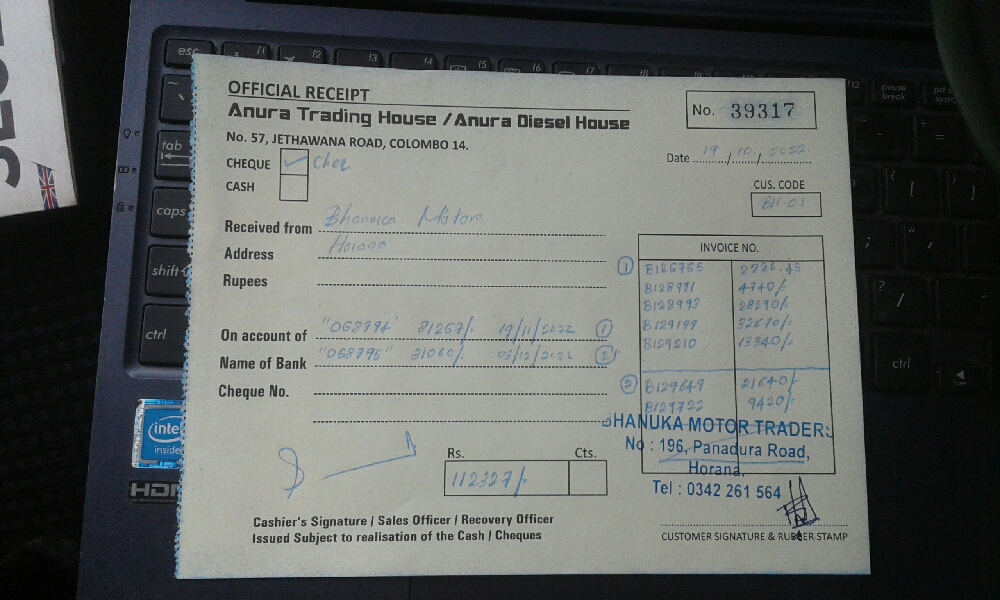 OFFICIAL RECEIPT
Anura Trading House / Anura Diesel House
No. 57, JETHAWANA ROAD, COLOMBO 14.
No. 39317
Date 19/10/2022
CHEQUE ✓ Cheq
CASH
CUS. CODE
BH-01
Received from Bhanuka Motors
Address Horana
Rupees
On account of "068794" 81267/- 19/11/2022 ①
Name of Bank "068795" 31060/- 03/12/2022 ②
Cheque No.
INVOICE NO.
① B126765 2726.45
B128971 4740/-
B128993 28290/-
B129199 32670/-
B129210 13340/-
② B129649 21640/-
B129722 9420/-
BHANUKA MOTOR TRADERS
No : 196, Panadura Road,
Horana.
Tel : 0342 261 564
Rs. Cts.
112327/-
Cashier's Signature / Sales Officer / Recovery Officer
Issued Subject to realisation of the Cash / Cheques
CUSTOMER SIGNATURE & RUBBER STAMP
esc
f1
f2
f3
f4
f5
f6
f7
f12
pause
break
prt sc
sysrq
tab
caps
shift
ctrl
ctrl
intel
inside
HDMI